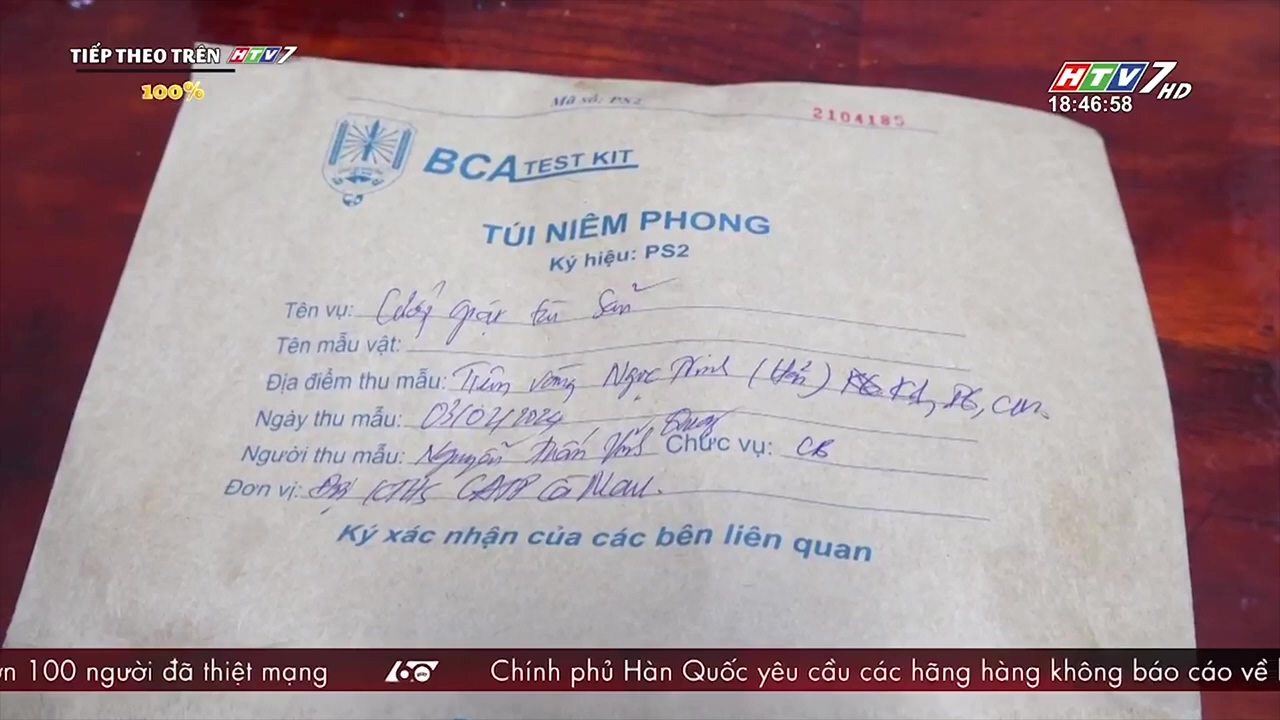 TIẾP THEO TRÊN HTV7
100%
HTV7 HD
18:46:58
Mã số: PS2
2104185
BCA TEST KIT
TÚI NIÊM PHONG
Ký hiệu: PS2
Tên vụ: Cướp giật tài sản
Tên mẫu vật:
Địa điểm thu mẫu: Tiệm vàng Ngọc
Ngày thu mẫu:
Người thu mẫu: Nguyễn Chức vụ: CB
Đơn vị: Đội KTHS CATP Cà Mau.
Ký xác nhận của các bên liên quan
ơn 100 người đã thiệt mạng 60 giây Chính phủ Hàn Quốc yêu cầu các hãng hàng không báo cáo về